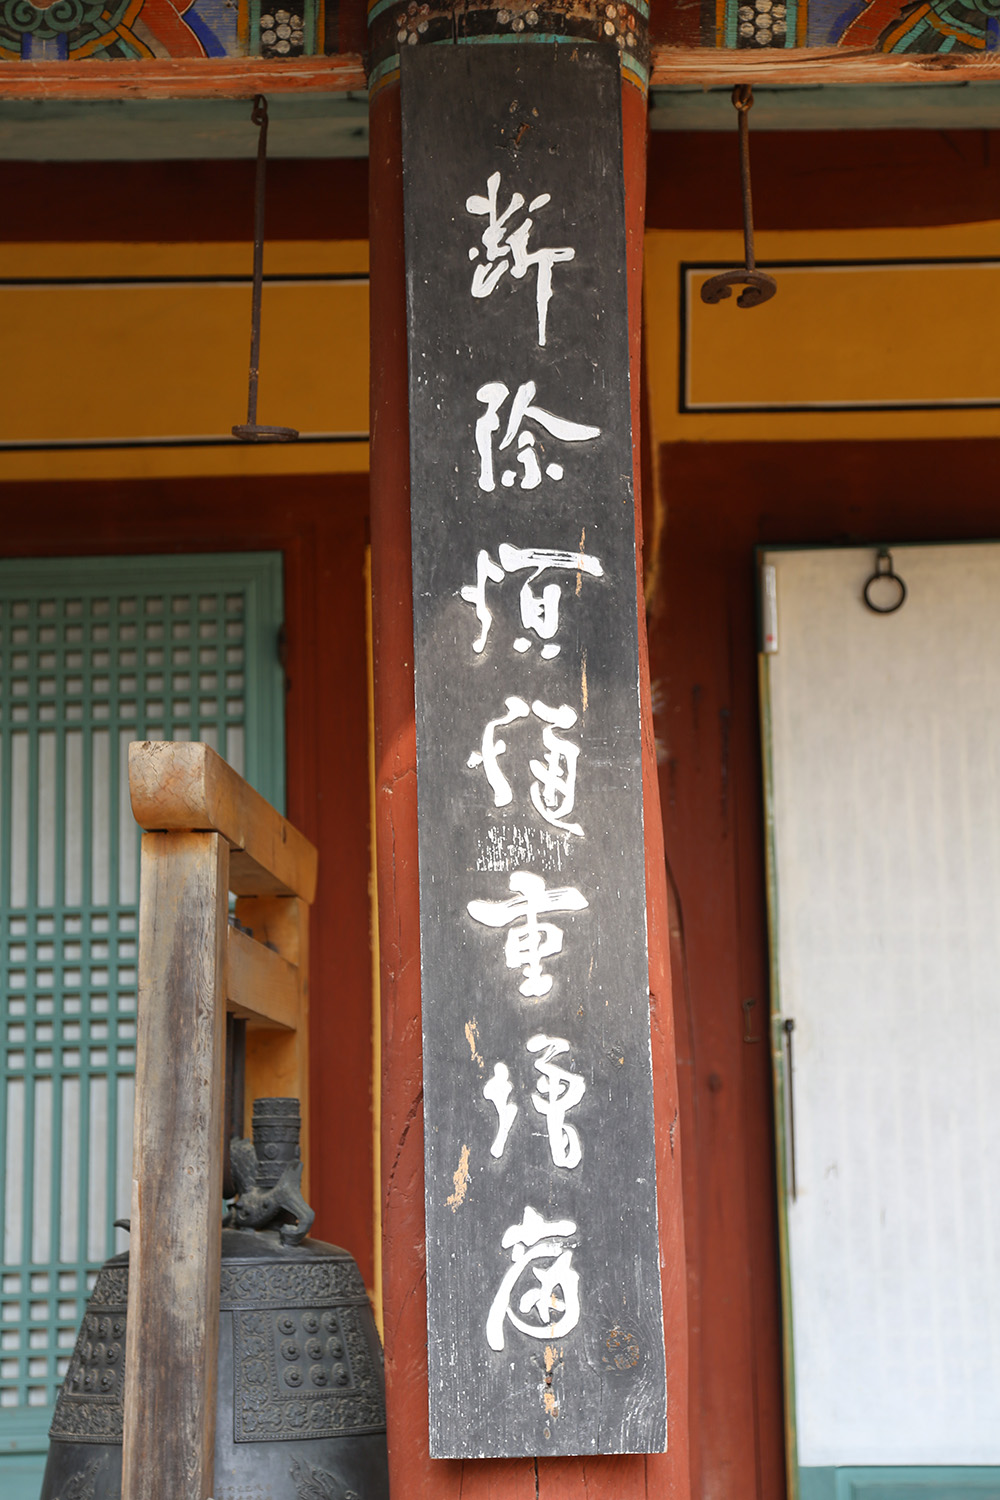 斷除煩惱重增病